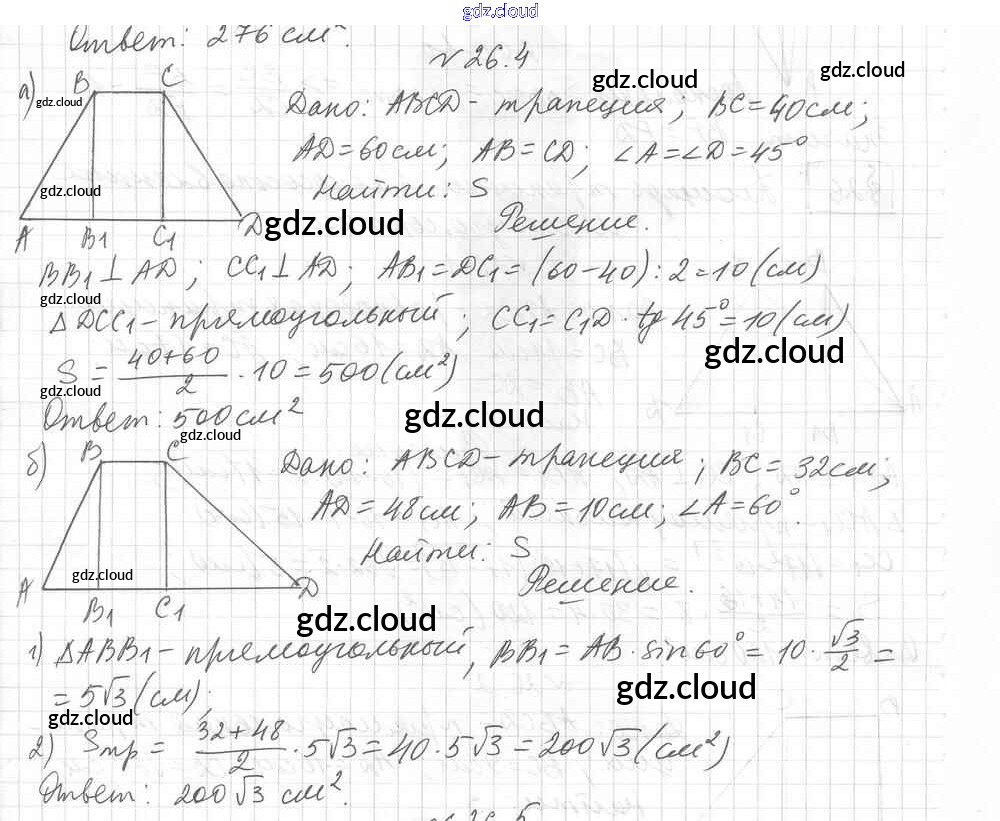 gdz.cloud
Ответ: 276 см².
№ 26.4
gdz.cloud
gdz.cloud
а)
B C
gdz.cloud
Дано: ABCD - трапеция; BC = 40 см;
AD = 60 см; AB = CD; ∠A = ∠D = 45°
gdz.cloud
Найти: S
gdz.cloud
Решение.
A B1 C1 D
BB1 ⊥ AD; CC1 ⊥ AD; AB1 = DC1 = (60-40) : 2 = 10 (см)
gdz.cloud
△DCC1 - прямоугольный; CC1 = C1D · tg 45° = 10 (см)
gdz.cloud
S = (40+60)/2 · 10 = 500 (см²)
gdz.cloud
Ответ: 500 см²
gdz.cloud
gdz.cloud
б)
B C
Дано: ABCD - трапеция; BC = 32 см;
AD = 48 см; AB = 10 см; ∠A = 60°.
Найти: S
gdz.cloud
Решение.
A B1 C1 D
gdz.cloud
1) △ABB1 - прямоугольный, BB1 = AB · sin 60° = 10 · √3/2 =
= 5√3 (см);
gdz.cloud
gdz.cloud
2) Sтр = (32+48)/2 · 5√3 = 40 · 5√3 = 200√3 (см²)
Ответ: 200√3 см².